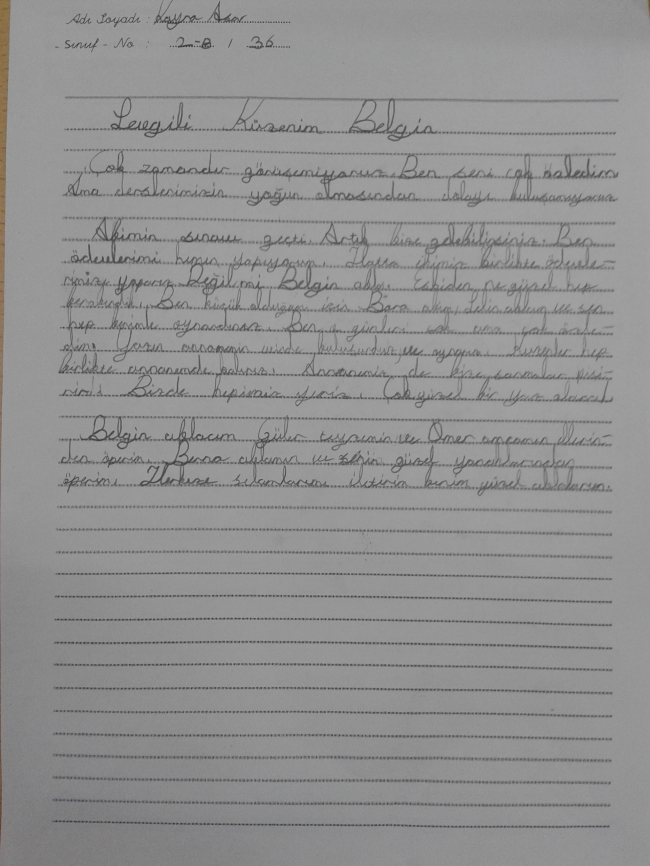 Adı Soyadı : Kayra Acar
Sınıf - No : 2-B / 36
Sevgili Kuzenim Belgin
Çok zamandır görüşemiyoruz. Ben seni çok özledim
Ama derslerimizin yoğun olmasından dolayı buluşamıyoruz
Abimin sınavı geçti. Artık bize gelebilirsiniz. Ben
ödevlerimi hemen yapıyorum. birlikte ödevle-
rimizi yaparız. Değil mi Belgin abla. Eskiden ne güzel hep
beraberdik. Ben küçük olduğum için Bora abim, Selin ablam ve sen
hep benimle oynardınız. Ben o günleri çok ama çok özle-
dim. Yazın anneannemin evinde buluşalım ve oynayalım. hep
birlikte anneannemde kalırız. Anneannem de bize sarmalar pişi-
rir. Bizde hepimiz yeriz. Çok güzel bir yaz olacak
Belgin ablacım Güler teyzemin ve Ömer amcamın ellerin-
den öperim. Berna ablamın ve senin güzel yanaklarından
öperim. Herkese selamlarımı iletirin benim güzel ablalarım.